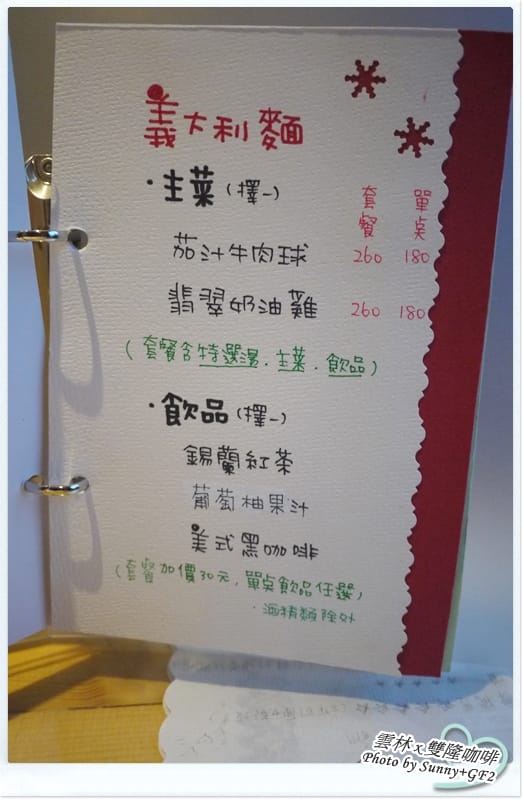 義大利麵
·主菜(擇一)
套餐 單桌
茄汁牛肉球 260 180
翡翠奶油雞 260 180
(套餐含特選湯.主菜.飲品)
·飲品(擇一)
錫蘭紅茶
葡萄柚果汁
美式黑咖啡
(套餐加價30元,單桌飲品任選)
·酒精類除外
雲林x雙隆咖啡
Photo by Sunny+GF2